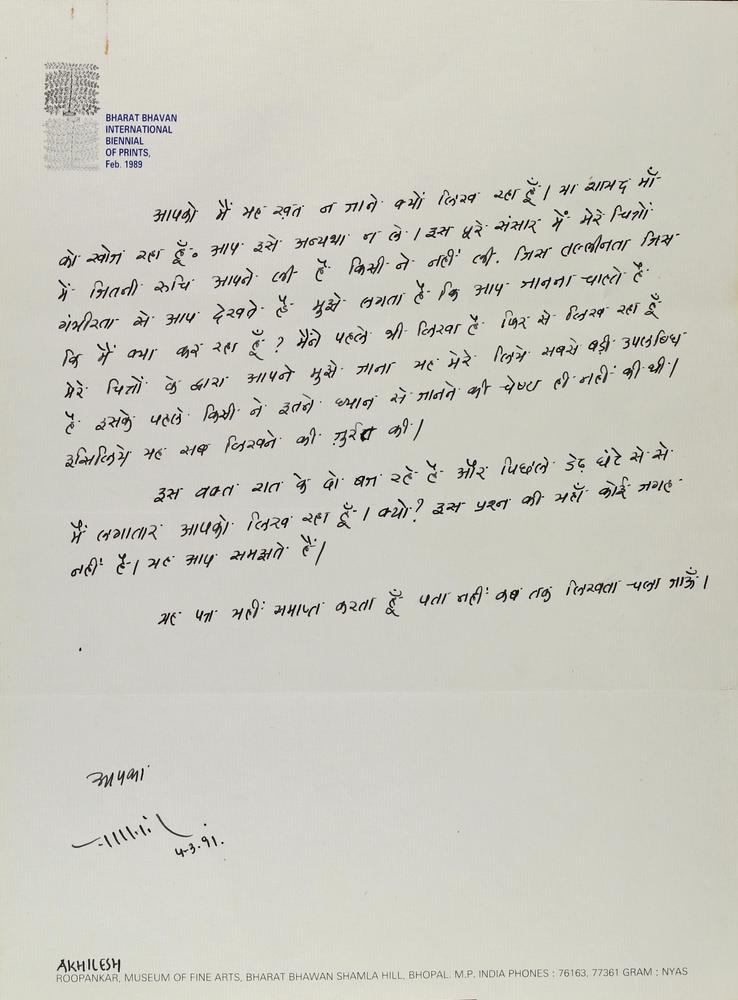 BHARAT BHAVAN
INTERNATIONAL
BIENNIAL
OF PRINTS,
Feb. 1989
आपको मैं यह ख़त न जाने क्यों लिख रहा हूँ। या शायद माँ
को खोज रहा हूँ। आप इसे अन्यथा न ले। इस पूरे संसार में मेरे चित्रों
में जितनी रुचि आपने ली है किसी ने नहीं ली. जिस तल्लीनता जिस
गंभीरता से आप देखते हैं मुझे लगता है कि आप जानना चाहते है
कि मैं क्या कर रहा हूँ? मैंने पहले भी लिखा है फिर से लिख रहा हूँ
मेरे चित्रों के द्वारा आपने मुझे जाना यह मेरे लिये सबसे बड़ी उपलब्धि
है इसके पहले किसी ने इतने ध्यान से जानने की चेष्टा ही नहीं की थी।
इसिलिये यह सब लिखने की ज़ुर्रत की।
इस वक्त रात के दो बज रहे है और पिछले डेढ़ घंटे से से
मैं लगातार आपको लिख रहा हूँ। क्यों? इस प्रश्न की यहाँ कोई जगह
नहीं है। यह आप समझते हैं।
यह पत्र यहीं समाप्त करता हूँ पता नहीं कब तक लिखता चला जाऊँ।
आपका
4-3-91.
AKHILESH
ROOPANKAR, MUSEUM OF FINE ARTS, BHARAT BHAWAN SHAMLA HILL, BHOPAL. M.P. INDIA PHONES : 76163, 77361 GRAM : NYAS